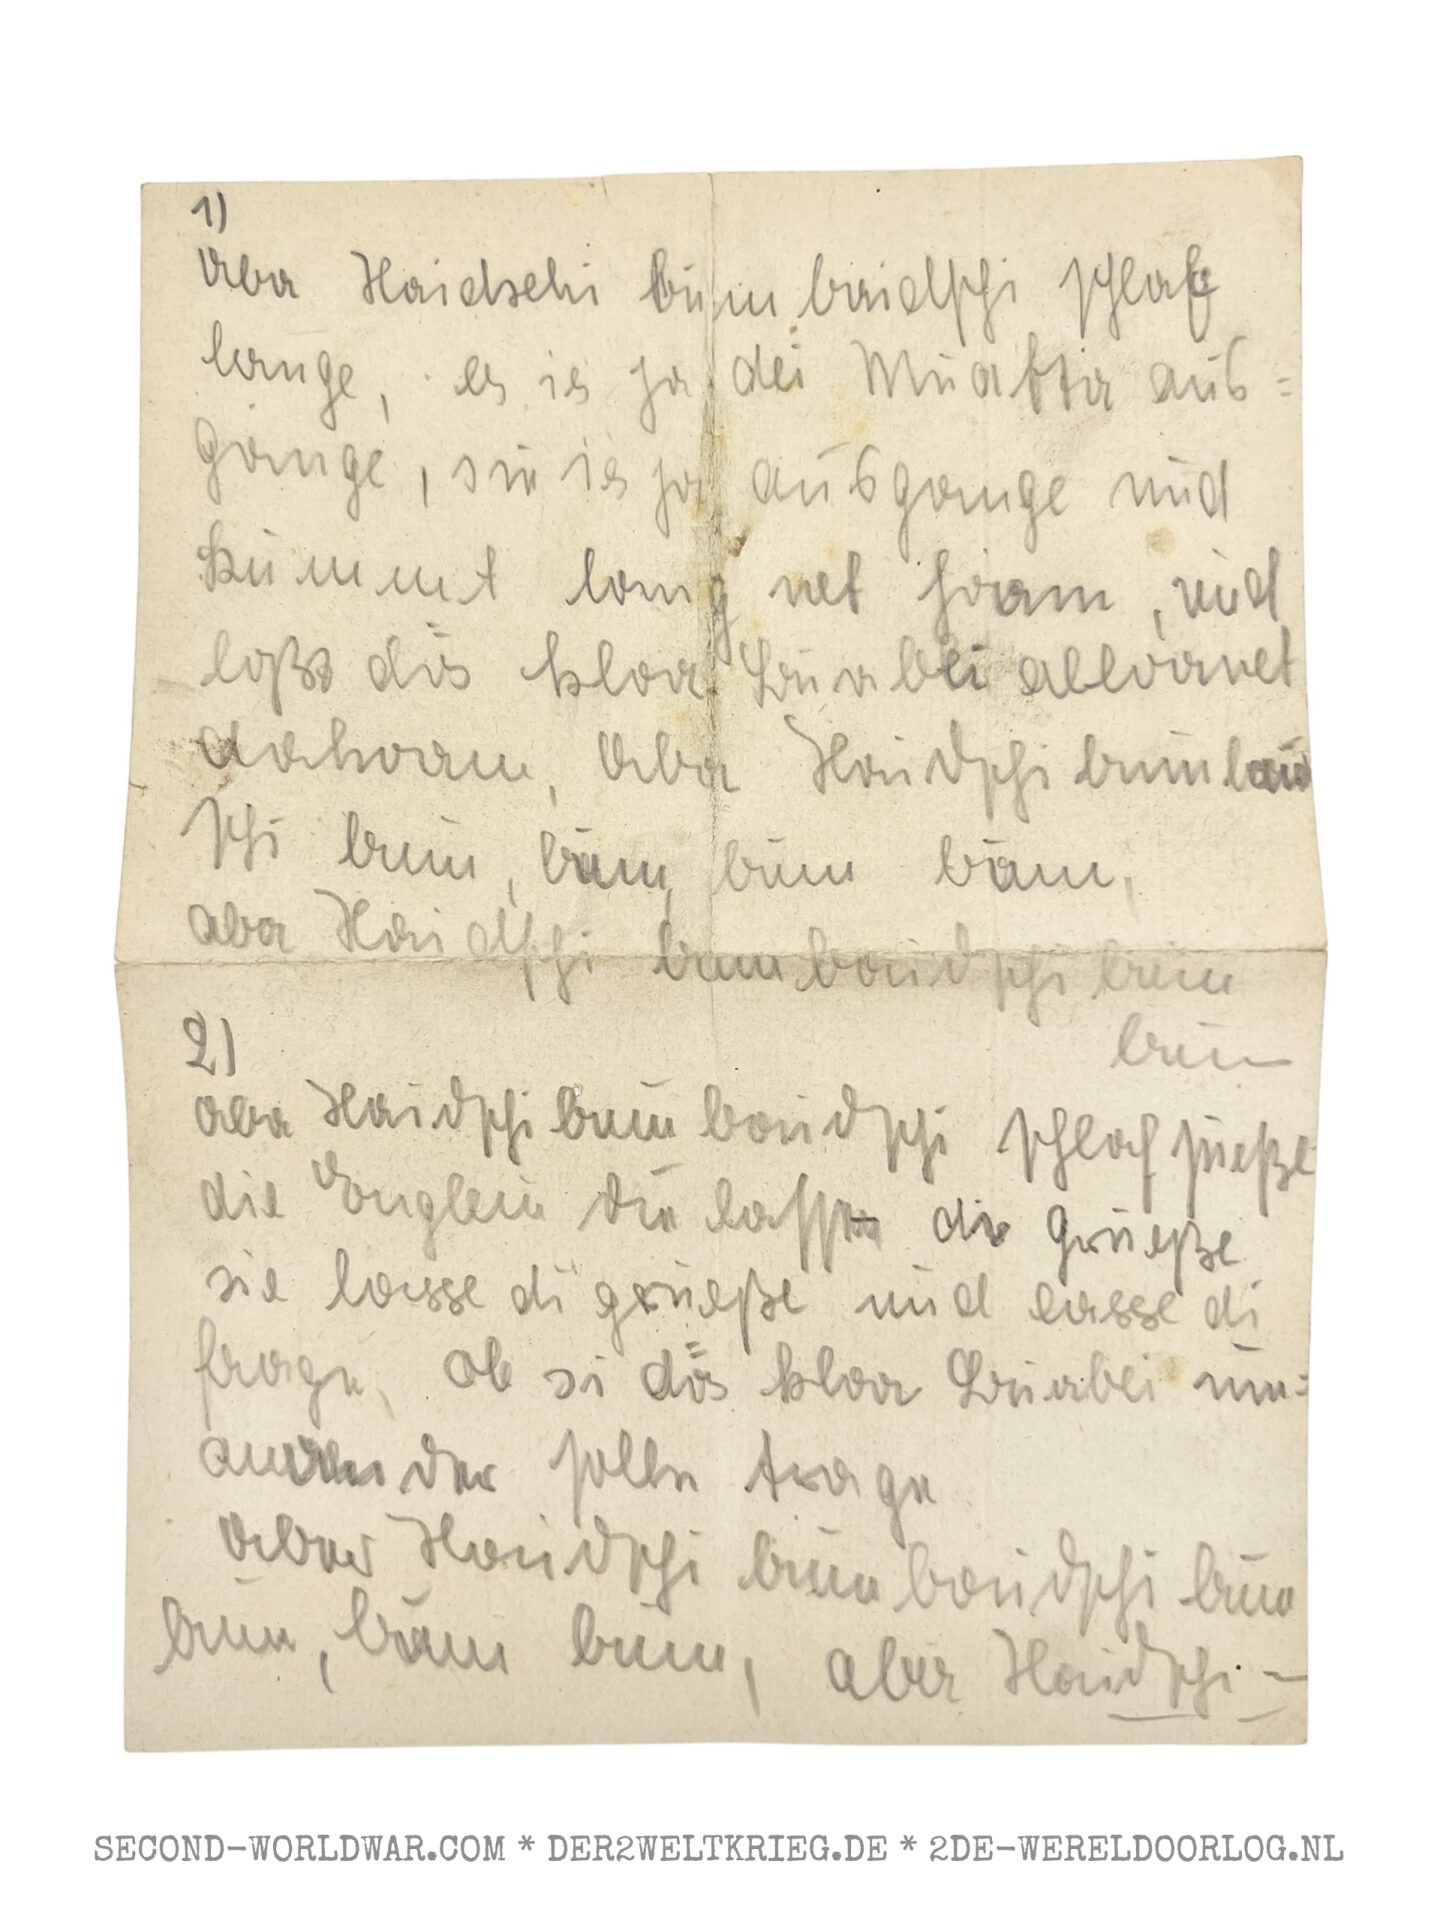 1)
Aba Haidschi bum baidschi schlaf
lange, es is ja dei Muatta aus=
gange, sie is ja ausgange und
kummt lang net hoam, und
loßt dös kloa Buabei alloanet
dahoam, Aba Haidschi bumbaid
schi bum, bum, bum bum,
aba Haidschi bumbaidschi bum
bum
2)
Aba Haidschi bum baidschi schlaf süeße
die Englein die lassen di grüeße
sie lasse di grüeße und lasse di
frage, ob si dös kloa Buabei um=
ananander solln trage
Aber Haidschi bum baidschi bum
bum, bum bum, aber Haidschi –
SECOND-WORLDWAR.COM * DER2WELTKRIEG.DE * 2DE-WERELDOORLOG.NL